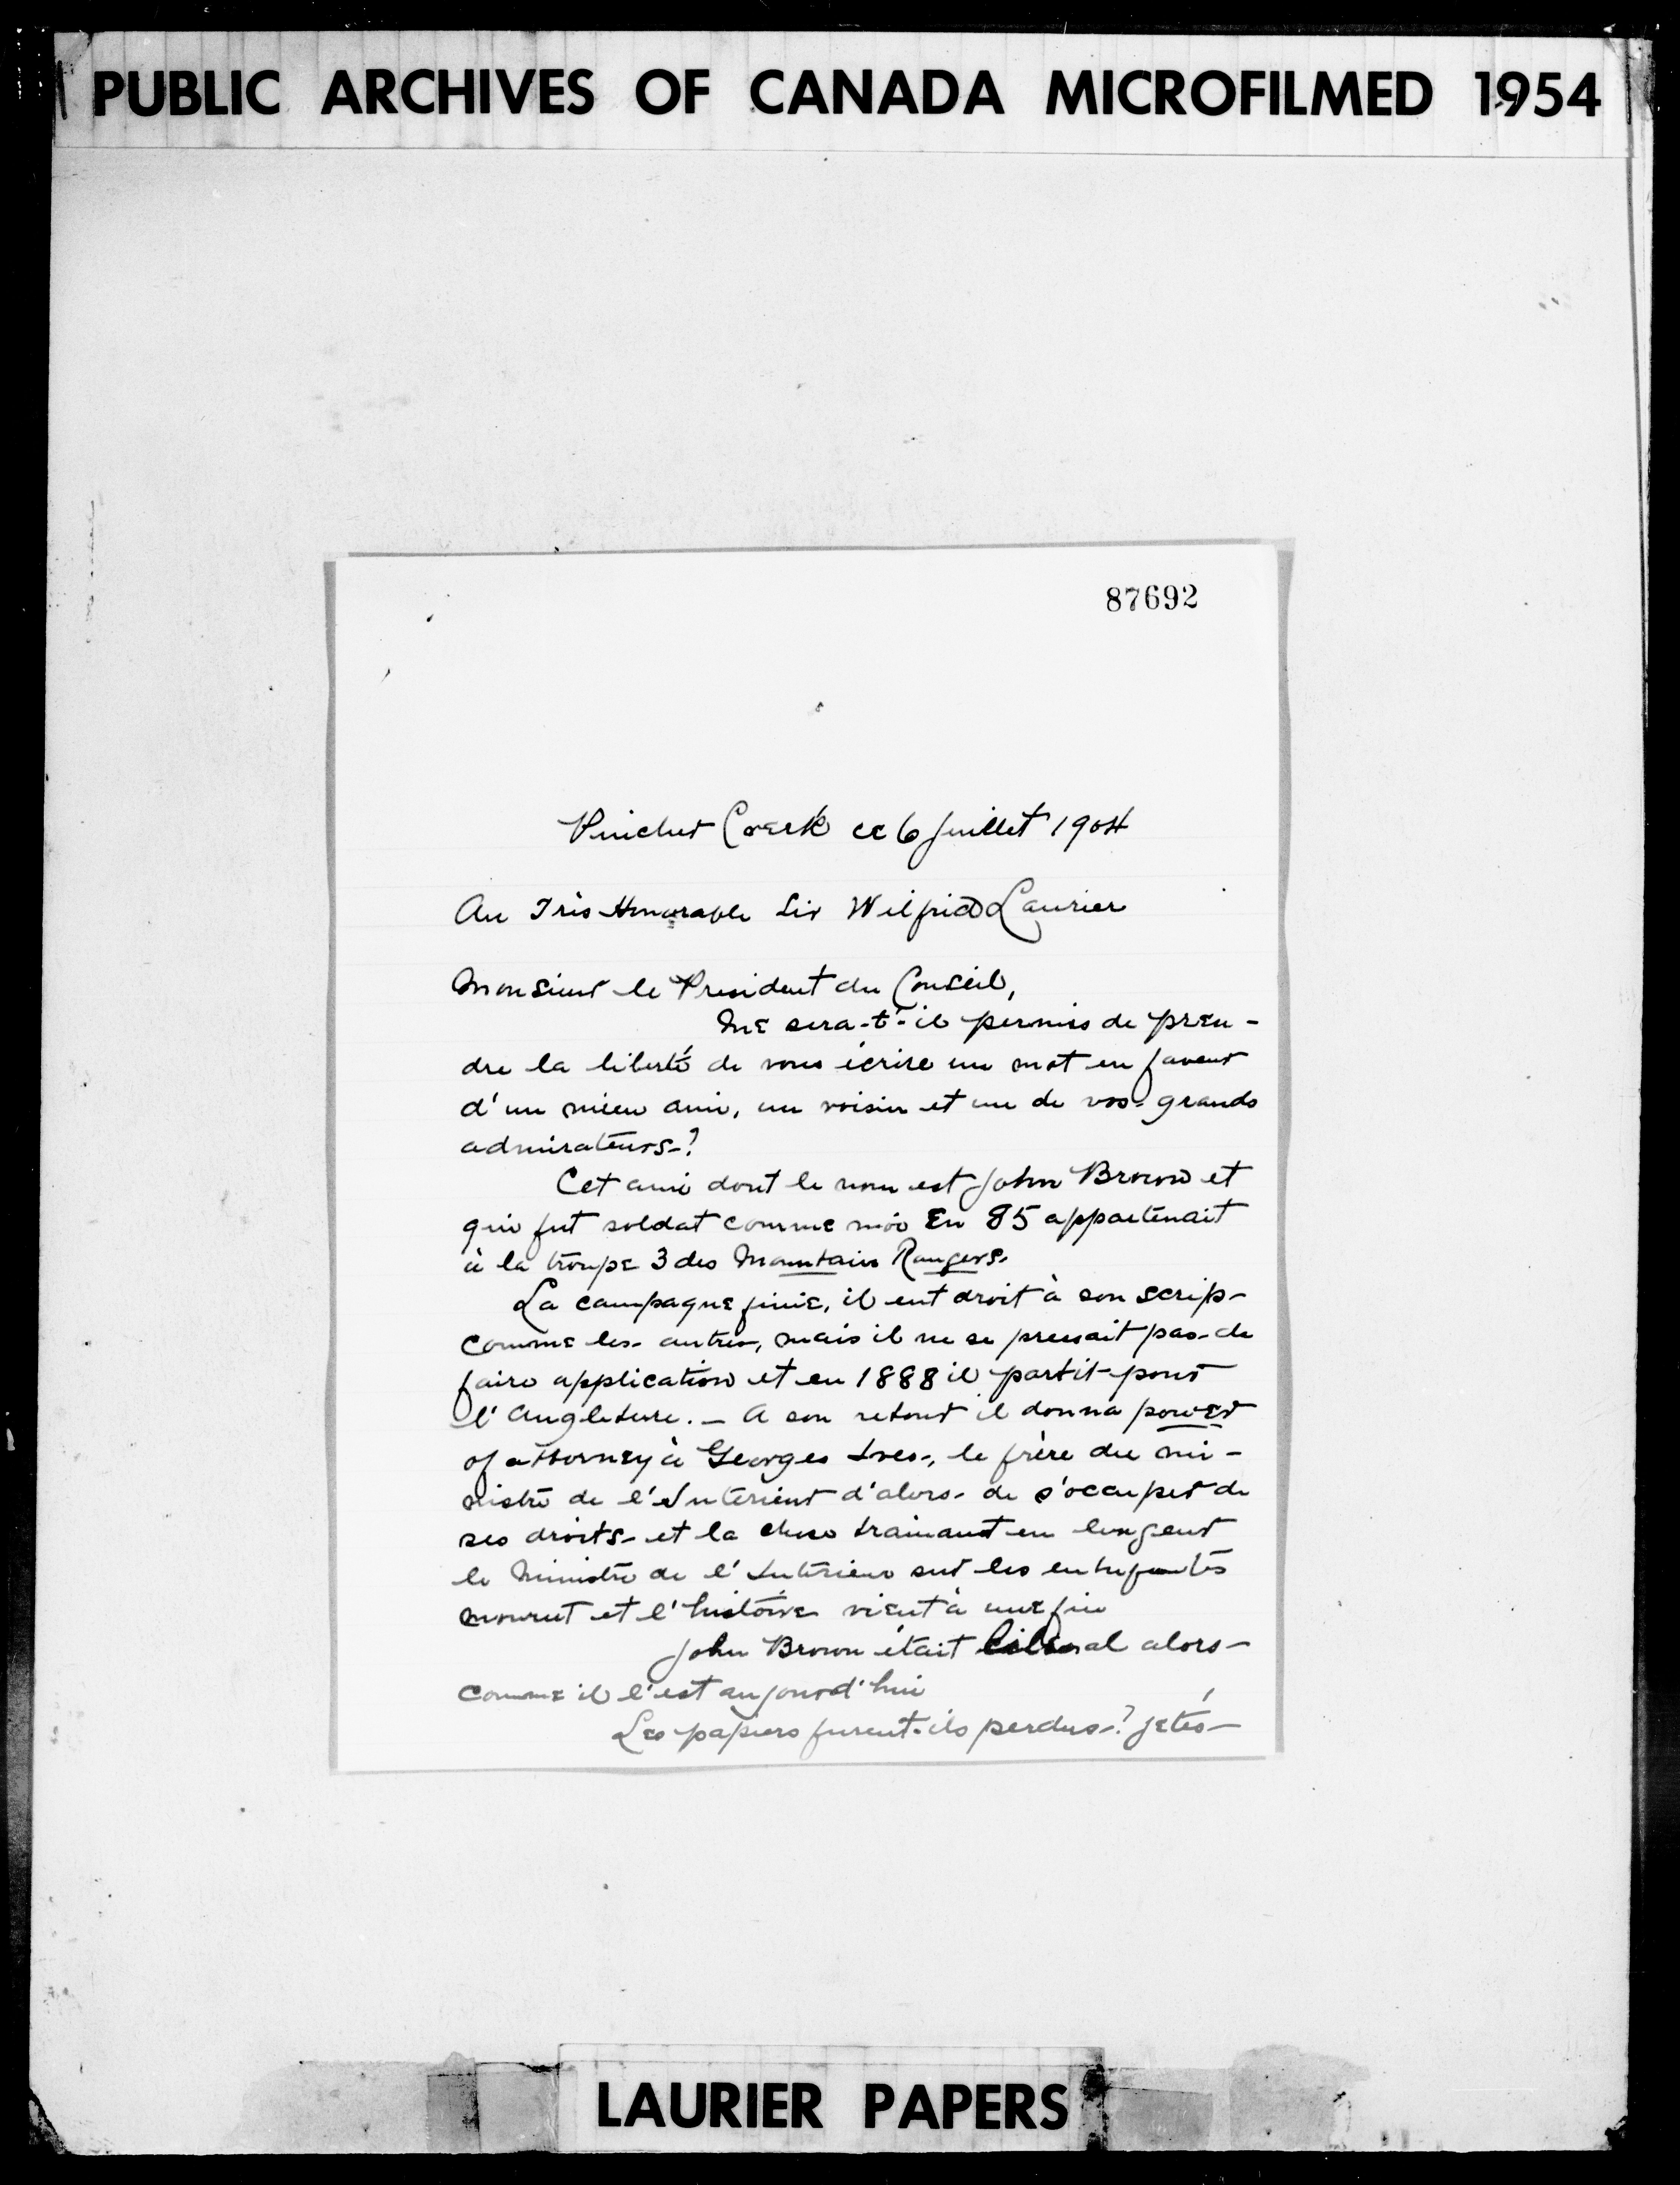 PUBLIC ARCHIVES OF CANADA MICROFILMED 1954
87692
Pincher Creek ce 6 Juillet 1904
Au Très Honorable Sir Wilfrid Laurier
Monsieur le President du Conseil,
Me sera-t'-il permis de pren-
dre la liberté de vous écrire un mot en faveur
d'un mien ami, un voisin et un de vos grands
admirateurs?
Cet ami dont le nom est John Brown et
qui fut soldat comme moi En 85 appartenait
à la troupe 3 des Mountain Rangers.
La campagne finie, il eut droit à son scrip-
comme les autres, mais il ne se pressait pas de
faire application et en 1888 il partit pour
l'Angleterre. — A son retour il donna power
of attorney à Georges Ives, le frère du mi-
nistre de l'Intérieur d'alors de s'occuper de
ses droits et la chose trainant en longeur
le Ministre de l'Intérieur sur les entrefaites
mourut et l'histoire vient à une fin
John Brown était libéral alors
comme il l'est aujourd'hui
Les papiers furent-ils perdus? jetés
LAURIER PAPERS